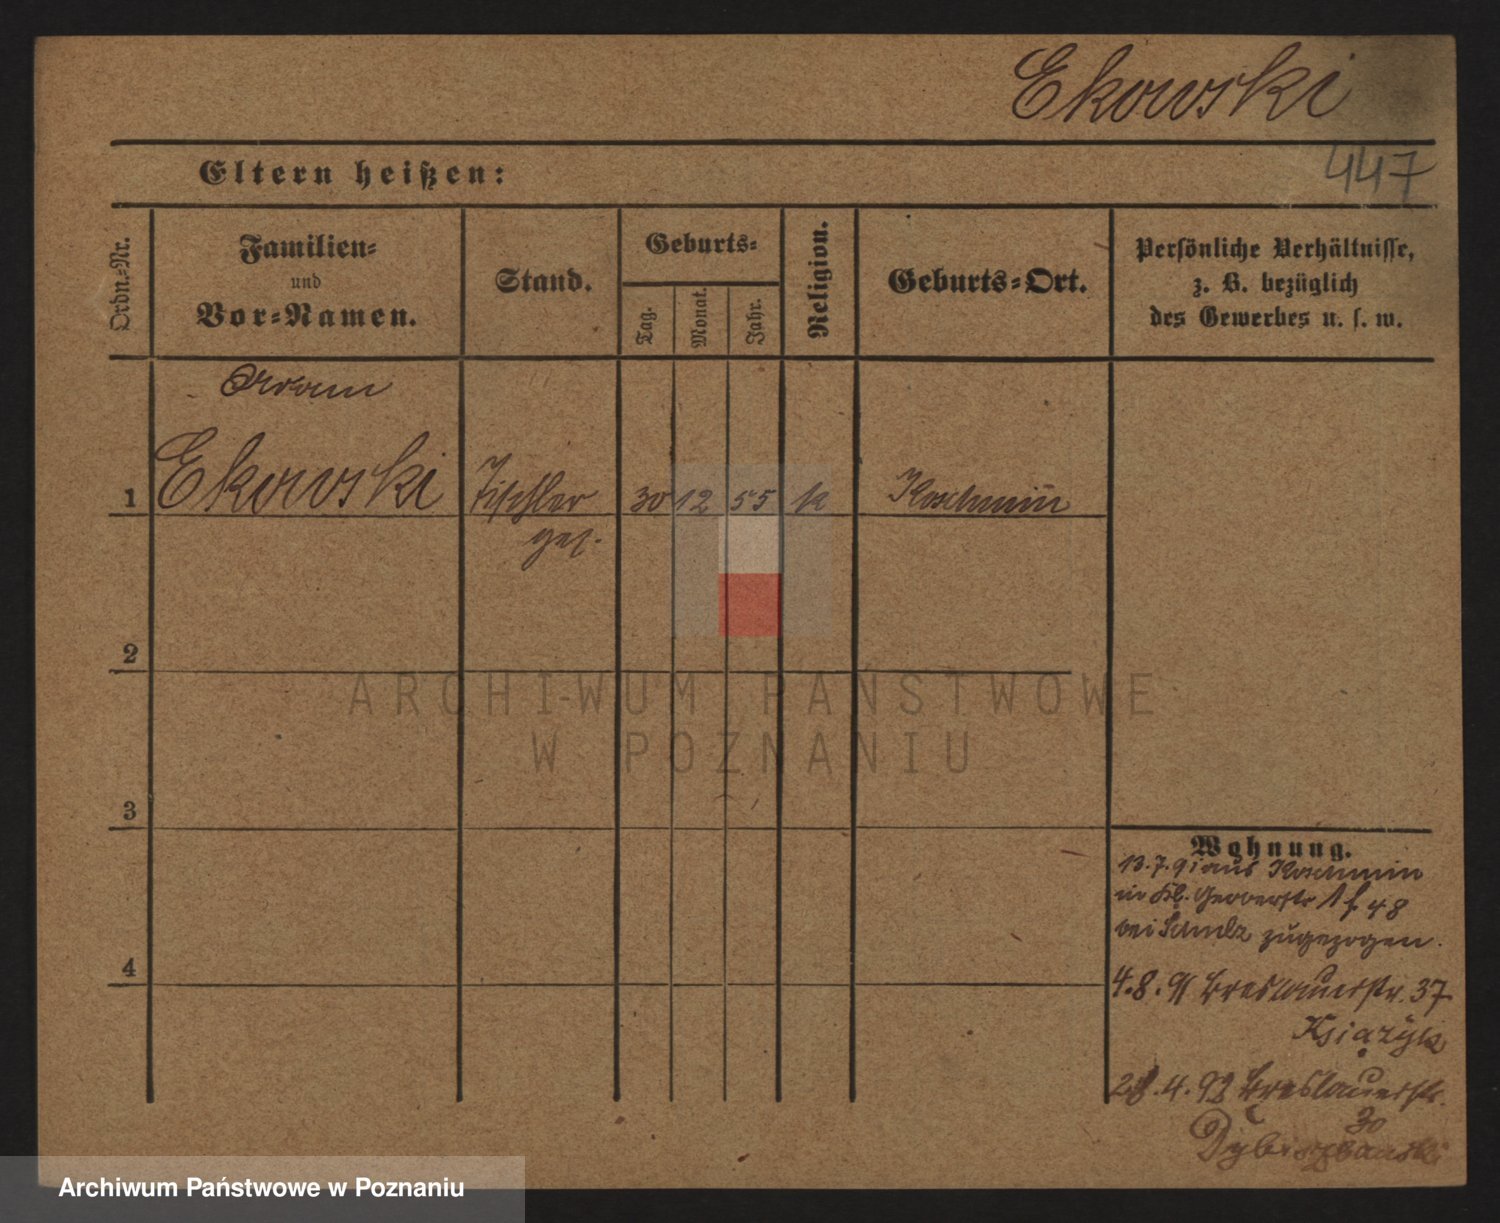 Ekowski
447
Eltern heißen:
Ordn.-Nr.
Familien-
und
Vor-Namen.
Stand.
Geburts-
Tag.
Monat.
Jahr.
Religion.
Geburts-Ort.
Persönliche Verhältnisse,
z. B. bezüglich
des Gewerbes u. s. w.
1
Ekowski
Tischler
ges.
30
12
55
k
Koschmin
2
3
4
Wohnung.
13.7.91 aus Koschmin
in Kl. Gerberstr 48
bei zugezogen.
4.8.91 Breslauerstr. 37
Książyk
28.4.92 Breslauerstr.
30
ARCHIWUM PAŃSTWOWE
W POZNANIU
Archiwum Państwowe w Poznaniu